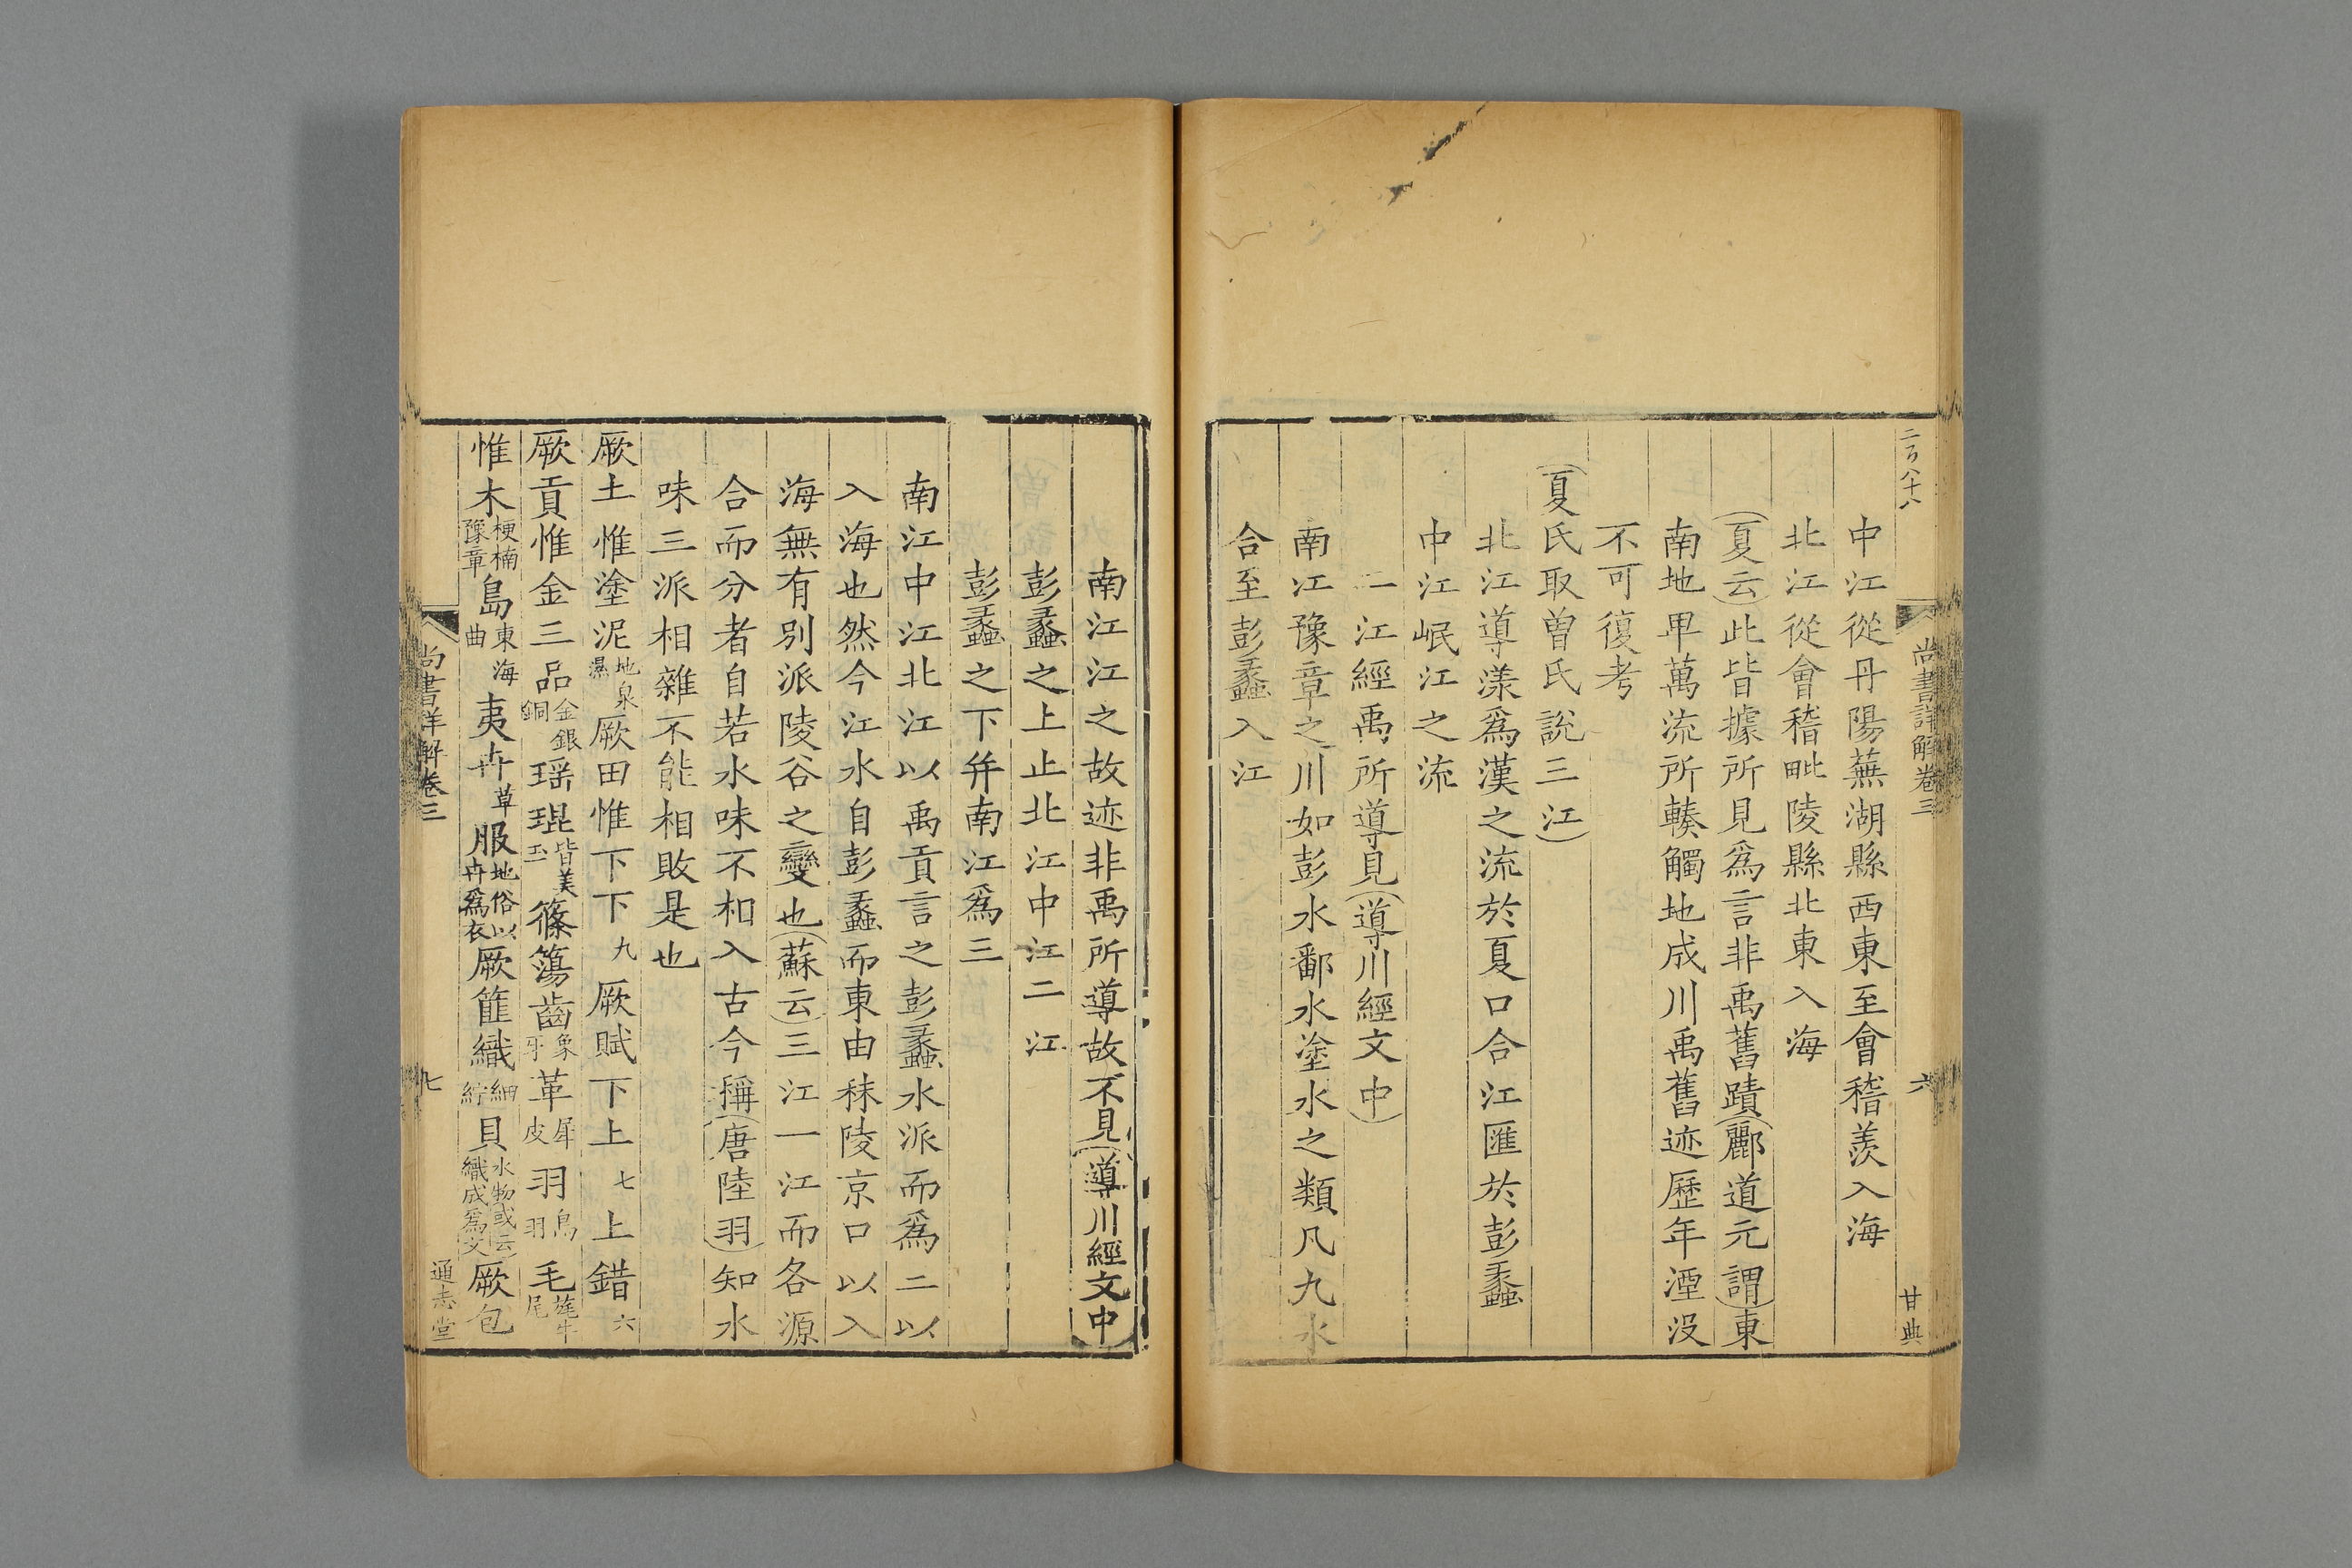 二百八十八
尚書詳解卷三
六
甘典
中江從丹陽蕪湖縣西東至會稽羨入海
北江從會稽毗陵縣北東入海
夏云此皆據所見爲言非禹舊蹟酈道元謂東
南地卑萬流所輳觸地成川禹舊迹歷年湮沒
不可復考
夏氏取曽氏說三江
北江導漾爲漢之流於夏口合江匯於彭蠡
中江岷江之流
二江經禹所導見導川經文中
南江豫章之川如彭水鄱水塗水之類凡九水
合至彭蠡入江
南江江之故迹非禹所導故不見導川經文中
彭蠡之上止北江中江二江
彭蠡之下并南江爲三
南江中江北江以禹貢言之彭蠡水派而爲二以
入海也然今江水自彭蠡而東由秣陵京口以入
海無有別派陵谷之變也蘇云三江一江而各源
合而分者自若水味不相入古今稱唐陸羽知水
味三派相雜不能相敗是也
厥土惟塗泥地泉濕厥田惟下下九厥賦下上七上錯六
厥貢惟金三品金銀銅瑶琨皆美玉篠簜齒象牙革犀皮羽鳥羽毛旄牛尾
惟木梗楠豫章島東海曲夷卉草服地俗以卉爲衣厥篚織細紵貝水物或云織成爲文厥包
尚書詳解卷三
七
通志堂